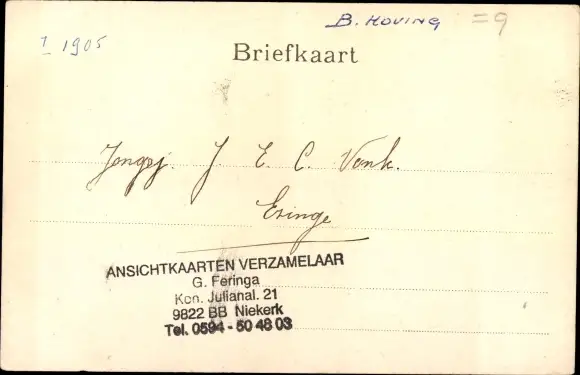 B. HOVING =9
1 1905
Briefkaart
J E C Vonk.
Eeringe
ANSICHTKAARTEN VERZAMELAAR
G. Feringa
Kon. Julianal. 21
9822 BB Niekerk
Tel. 0594 - 50 48 03